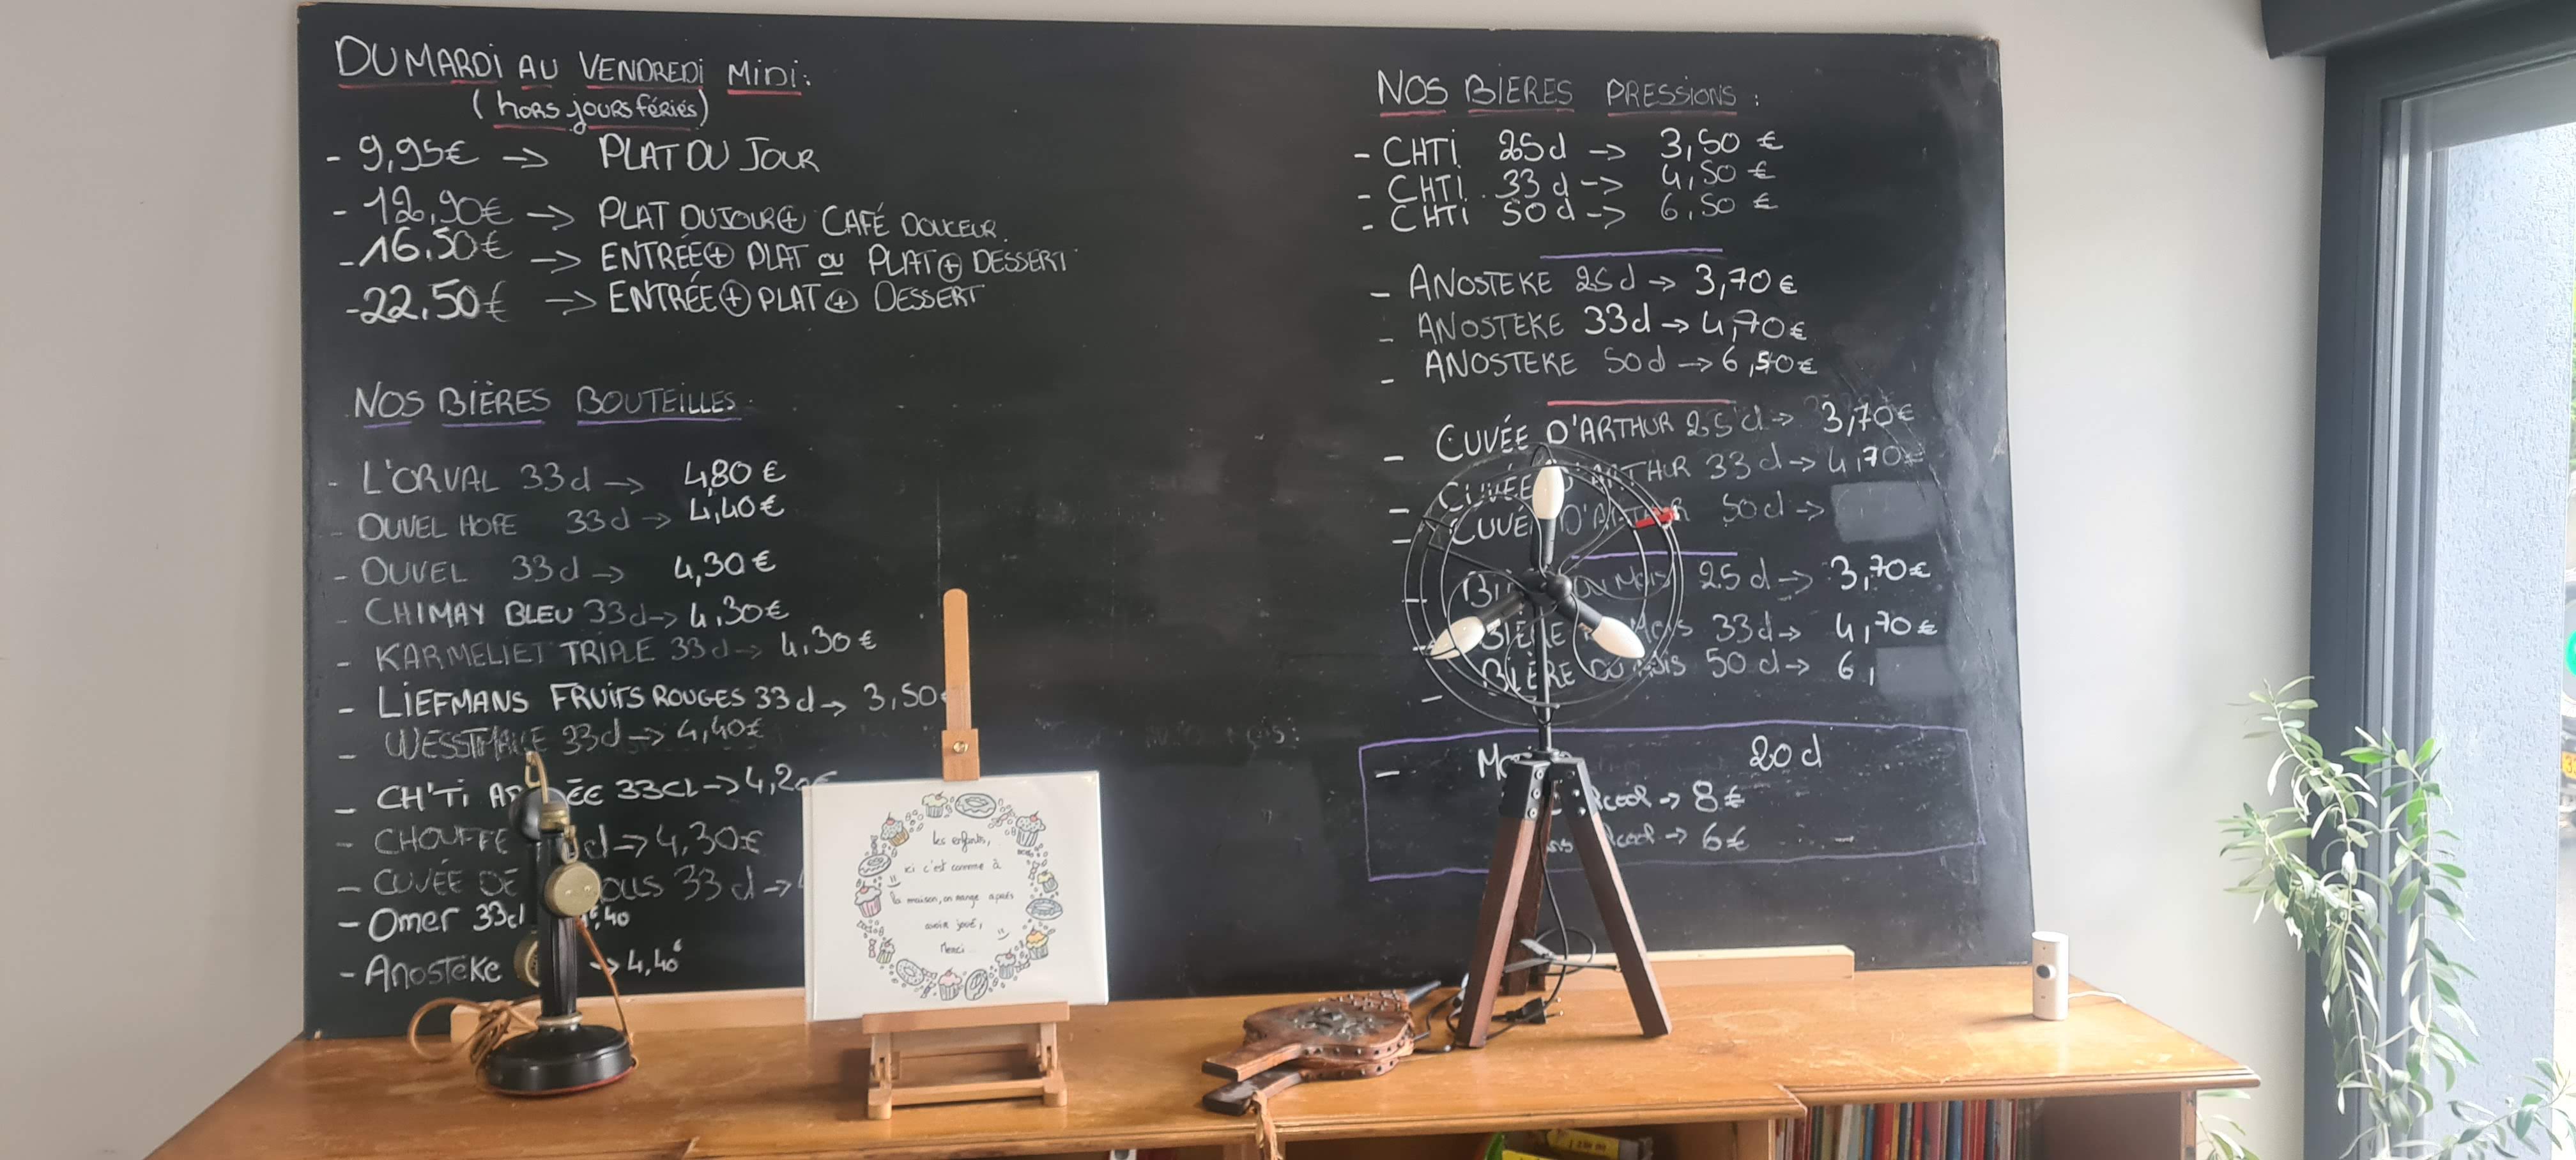 DU MARDI AU VENDREDI MIDI:
(hors jours fériés)
- 9,95€ -> PLAT DU JOUR
- 12,90€ -> PLAT DU JOUR + CAFÉ DOUCEUR.
- 16.50€ -> ENTRÉE + PLAT ou PLAT + DESSERT
- 22.50€ -> ENTRÉE + PLAT + DESSERT
NOS BIÈRES BOUTEILLES
- L'ORVAL 33cl -> 4,80€
- DUVEL HOPE 33cl -> 4,40€
- DUVEL 33cl -> 4,30€
- CHIMAY BLEU 33cl -> 4.30€
- KARMELIET TRIPLE 33cl -> 4.30€
- LIEFMANS FRUITS ROUGES 33cl -> 3,50€
- 33cl -> 4,40€
- CH'TI 33CL -> 4,20€
- CHOUFFE cl -> 4,30€
- CUVÉE DE 33cl ->
- Omer 33cl ,40
- Anosteke -> 4,40€
les enfants,
ici c'est comme à
la maison, on mange après
avoir joué,
Merci
NOS BIERES PRESSIONS :
- CHTI 25cl -> 3,50€
- CHTI 33cl -> 4,50€
- CHTI 50cl -> 6,50€
- ANOSTEKE 25cl -> 3,70€
- ANOSTEKE 33cl -> 4,70€
- ANOSTEKE 50cl -> 6,50€
- CUVÉE D'ARTHUR 25cl -> 3,70€
- CUVÉE D'ARTHUR 33cl -> 4,70€
- CUVÉE D'ARTHUR 50cl ->
- BIÈRE DU MOIS 25cl -> 3,70€
- BIÈRE DU MOIS 33cl -> 4,70€
- BIÈRE DU MOIS 50cl -> 6,
- 20cl
-> 8€
-> 6€